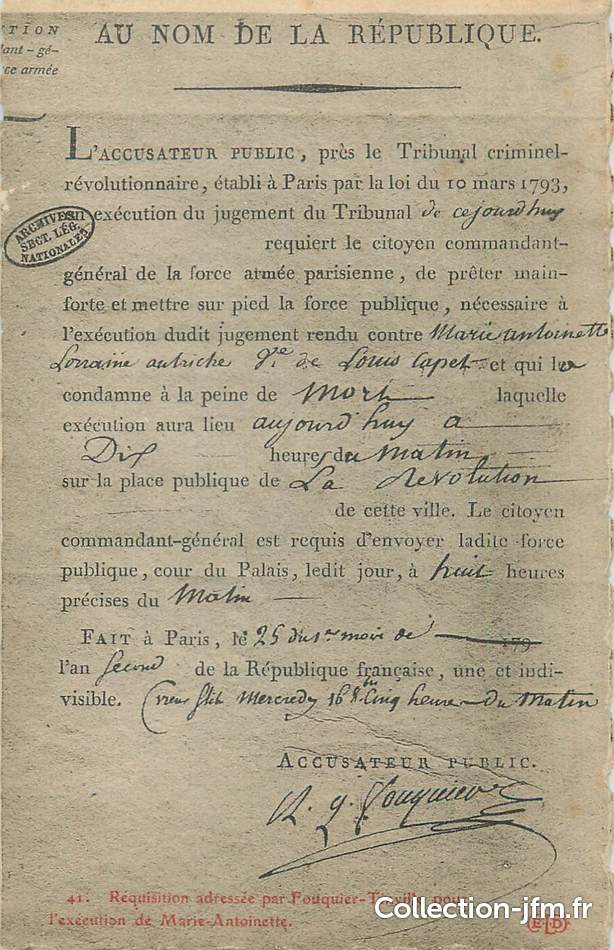 TION
dant-gé-
ce armée
AU NOM DE LA RÉPUBLIQUE.
L'ACCUSATEUR PUBLIC, près le Tribunal criminel-
révolutionnaire, établi à Paris par la loi du 10 mars 1793,
en exécution du jugement du Tribunal de cejourdhuy
ARCHIVES
SECT. LÉG.
NATIONALES
requiert le citoyen commandant-
général de la force armée parisienne, de prêter main-
forte et mettre sur pied la force publique, nécessaire à
l'exécution dudit jugement rendu contre Marie antoinette
Lorraine autriche Ve de Louis Capet et qui la
condamne à la peine de Mort laquelle
exécution aura lieu aujourd'huy a
Dix heures du Matin
sur la place publique de La Revolution
de cette ville. Le citoyen
commandant-général est requis d'envoyer ladite force
publique, cour du Palais, ledit jour, à huit heures
précises du Matin
FAIT à Paris, le 25 du 1er mois de 179
l'an second de la République française, une et indi-
visible. (vieux stile Mercredy 16 8bre Cinq heures du Matin
ACCUSATEUR PUBLIC.
A. q. Fouquier
41. Réquisition adressée par Fouquier-Tinville pour
l'exécution de Marie-Antoinette.
ELD
Collection-jfm.fr